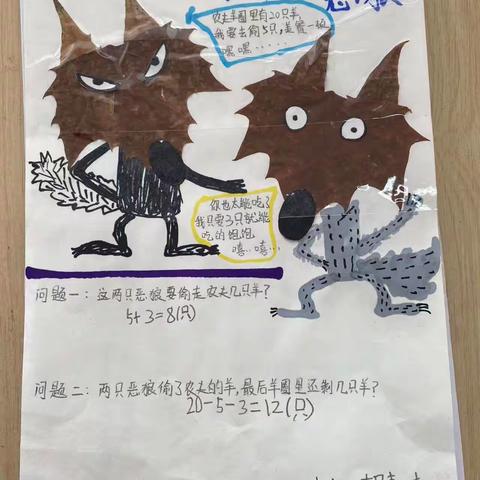 恶狼
农夫羊圈里有20只羊,
我要去偷5只,美餐一顿
嘿嘿······
你也太能吃了
我只要3只就能
吃的饱饱
嘻···嘻···
问题一:这两只恶狼要偷走农夫几只羊?
5+3=8(只)
问题二:两只恶狼偷了农夫的羊,最后羊圈里还剩几只羊?
20-5-3=12(只)